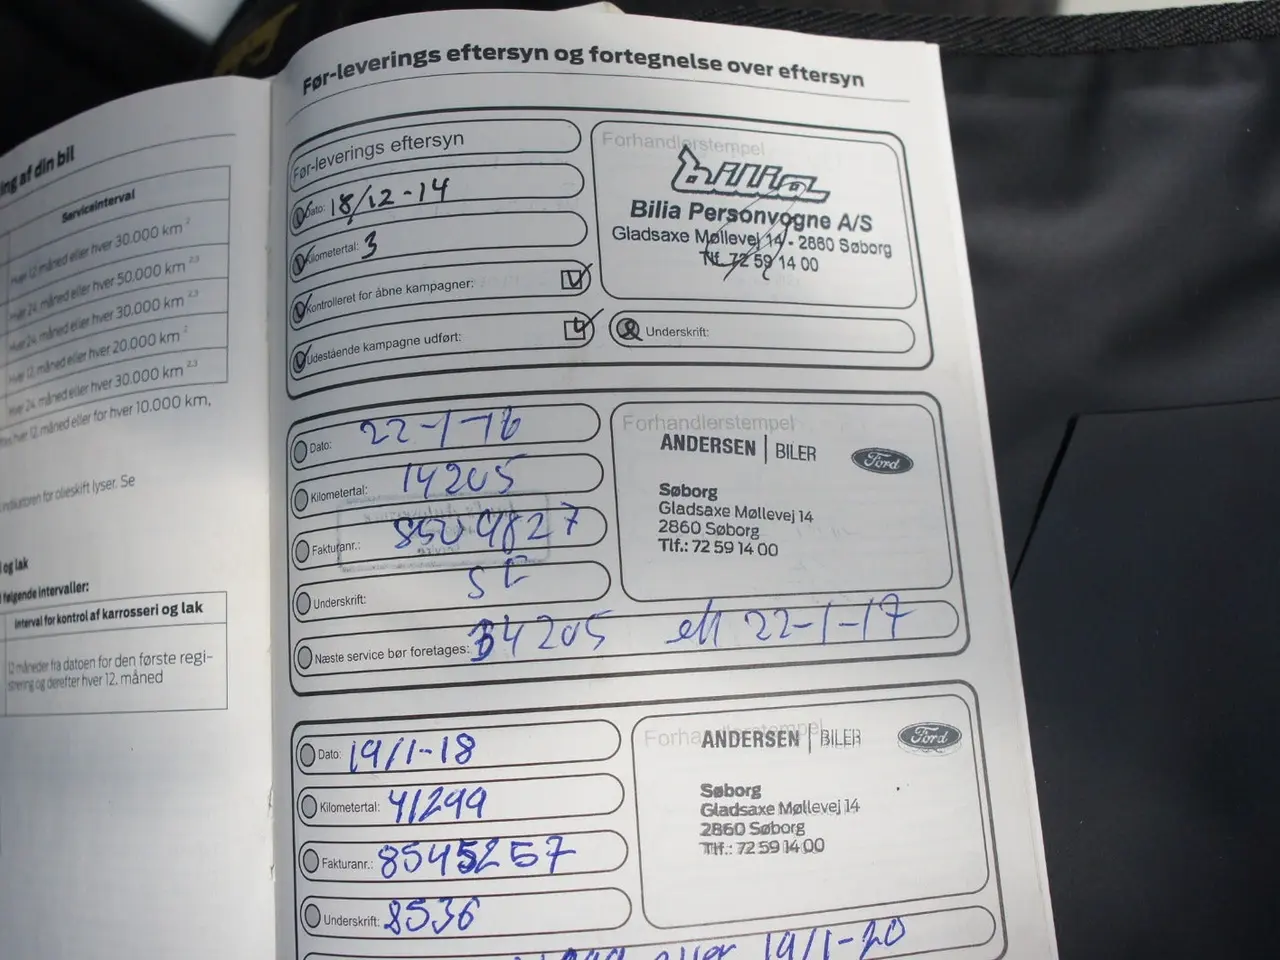 Før-leverings eftersyn og fortegnelse over eftersyn
ing af din bil
Serviceinterval
Hver 12. måned eller hver 30.000 km 2
Hver 24. måned eller hver 50.000 km 2,3
Hver 24. måned eller hver 30.000 km 2,3
Hver 12. måned eller hver 20.000 km 2
Hver 24. måned eller hver 30.000 km 2,3
hver 12. måned eller for hver 10.000 km,
indikatoren for olieskift lyser. Se
og lak
følgende intervaller:
Interval for kontrol af karrosseri og lak
12 måneder fra datoen for den første regi-
strering og derefter hver 12. måned
Før-leverings eftersyn
Dato: 18/12-14
Kilometertal: 3
Kontrolleret for åbne kampagner:
Udestående kampagne udført:
Forhandlerstempel
bilia
Bilia Personvogne A/S
Gladsaxe Møllevej 14 - 2860 Søborg
Tlf. 72 59 14 00
Underskrift:
Dato: 22-1-16
Kilometertal: 14205
Fakturanr.: 8509827
Underskrift:
Næste service bør foretages: 34205 ell 22-1-17
Forhandlerstempel
ANDERSEN | BILER Ford
Søborg
Gladsaxe Møllevej 14
2860 Søborg
Tlf.: 72 59 14 00
Dato: 19/1-18
Kilometertal: 41299
Fakturanr.: 8545257
Underskrift: 8536
Forhandlerstempel
ANDERSEN | BILER Ford
Søborg
Gladsaxe Møllevej 14
2860 Søborg
Tlf.: 72 59 14 00
eller 19/1-20